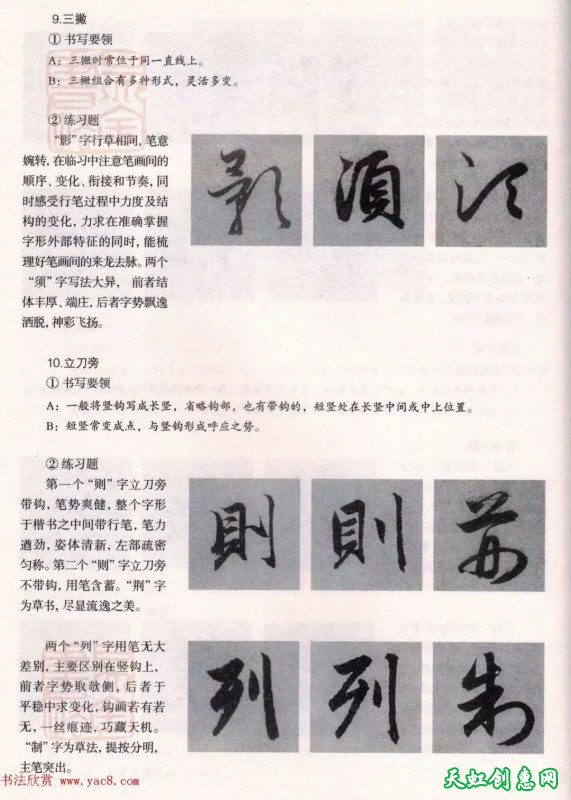 9.三撇
① 书写要领
A：三撇时常位于同一直线上。
B：三撇组合有多种形式，灵活多变。
② 练习题
“影”字行草相间，笔意
婉转，在临习中注意笔画间的
顺序、变化、衔接和节奏，同
时感受行笔过程中力度及结
构的变化，力求在准确掌握
字形外部特征的同时，能梳
理好笔画间的来龙去脉。两个
“须”字写法大异，前者结
体丰厚、端庄，后者字势飘逸
洒脱，神彩飞扬。
影 須 须
10.立刀旁
① 书写要领
A：一般将竖钩写成长竖，省略钩部，也有带钩的，短竖处在长竖中间或中上位置。
B：短竖常变成点，与竖钩形成呼应之势。
② 练习题
第一个“则”字立刀旁
带钩，笔势爽健，整个字形
于楷书之中间带行笔，笔力
遒劲，姿体清新，左部疏密
匀称。第二个“则”字立刀旁
不带钩，用笔含蓄。“荆”字
为草书，尽显流逸之美。
則 則 荆
两个“列”字用笔无大
差别，主要区别在竖钩上，
前者字势取欹侧，后者于
平稳中求变化，钩画若有若
无，一丝痕迹，巧藏天机。
“制”字为草法，提按分明，
主笔突出。
列 列 制
书法欣赏 www.yac8.com
天虹创意网